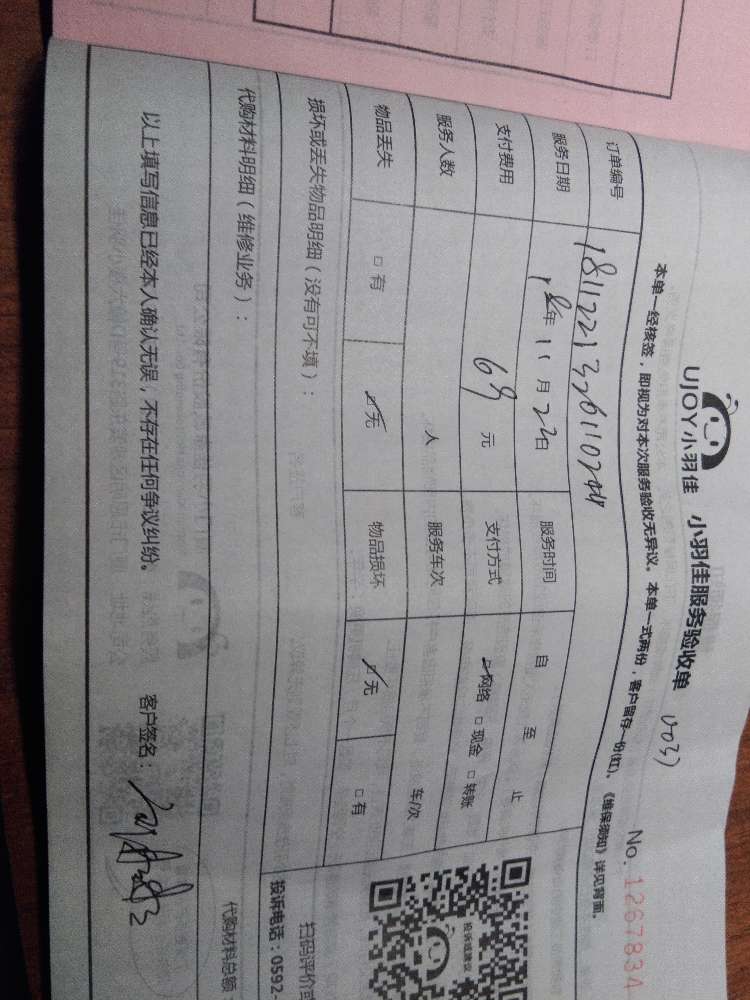 UJOY小羽佳 小羽佳服务验收单
No. 1267834
本单一经核签，即视为对本次服务验收无异议。本单一式两份，客户留存一份(红)，《维保须知》详见背面。
订单编号
服务日期 18年 11 月 22日 服务时间 自 至 止
支付费用 69 元 支付方式 ☑网络 □现金 □转账
服务人数 人 服务车次 车/次
物品丢失 □有 ☑无 物品损坏 ☑无 □有
损坏或丢失物品明细（没有可不填）：
代购材料明细（维修业务）：
代购材料总额
以上填写信息已经本人确认无误，不存在任何争议纠纷。 客户签名：
投诉或建议
扫码评价或
投诉电话：0592-